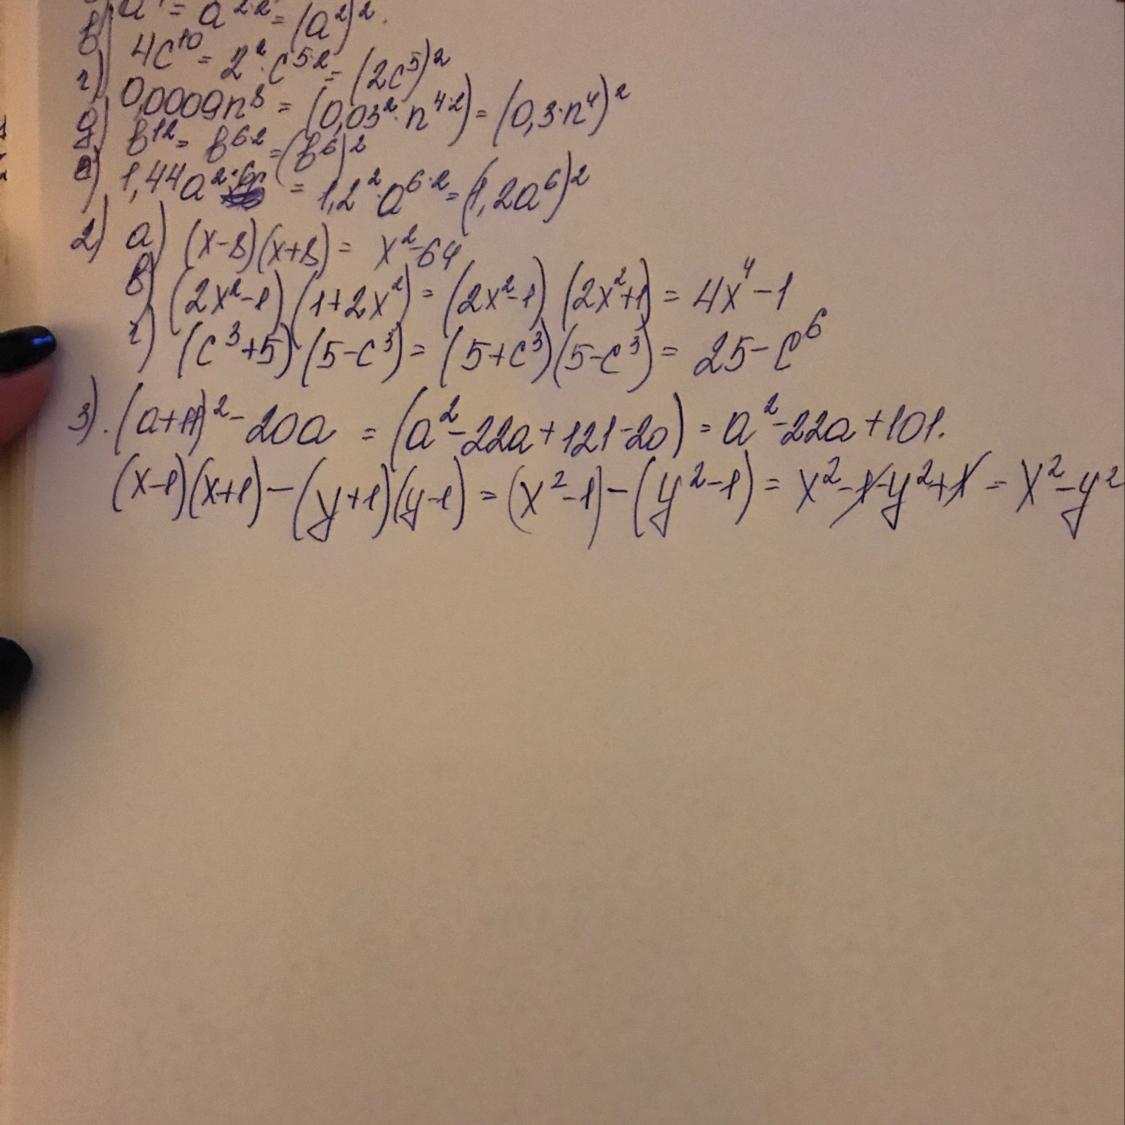 в) a⁴ = a²·² = (a²)².
г) 4c¹⁰ = 2²·c⁵·² = (2c⁵)²
д) 0,0009n⁸ = (0,03²·n⁴·²) = (0,3·n⁴)²
в¹² = в⁶·² = (в⁶)²
е) 1,44a² = 1,2²·a⁶·² = (1,2a⁶)²
2) а) (x-8)(x+8) = x²-64
в) (2x²-1)(1+2x²) = (2x²-1)(2x²+1) = 4x⁴-1
г) (c³+5)(5-c³) = (5+c³)(5-c³) = 25-c⁶
3). (a+11)²-20a = (a²-22a+121-20) = a²-22a+101.
(x-1)(x+1)-(y+1)(y-1) = (x²-1)-(y²-1) = x²-1-y²+1 = x²-y²